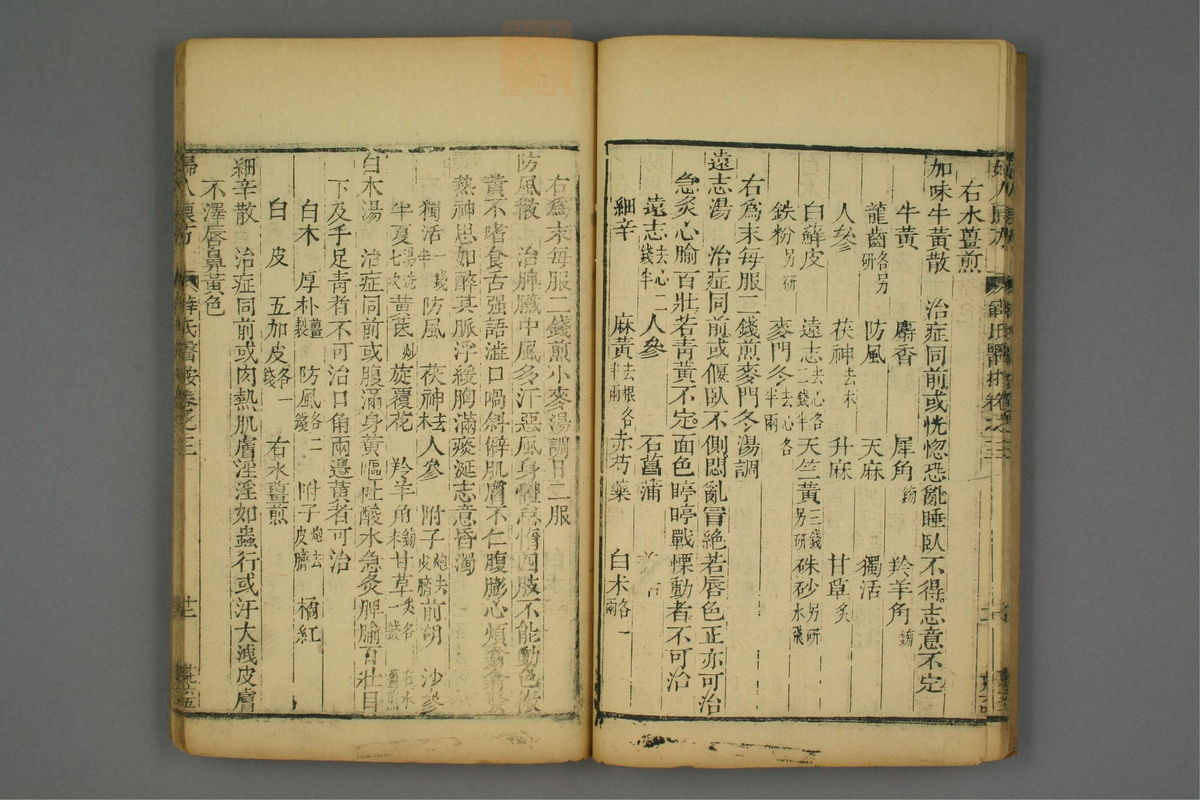 右水薑煎
加味牛黃散　治症同前或恍惚恐亂睡臥不得志意不定
牛黃　麝香　犀角鎊　羚羊角鎊
龍齒各另研　防風　天麻　獨活
人參　茯神去木　升麻　甘草炙
白蘚皮　遠志去心各二錢半　天竺黃三錢另研　硃砂另研水飛
鉄粉另研　麥門冬去心各半兩
右為末每服二錢煎麥門冬湯調
遠志湯　治症同前或偃臥不側悶亂冒絕若唇色正亦可治
急灸心腧百壯若青黃不定面色㽹㽹戰慄動者不可治
遠志去心二錢半　人參　石菖蒲
細辛　麻黃去根各半兩　赤芍藥　白朮各一兩
右為末每服二錢煎小麥湯調日二服
防風散　治脾臟中風多汗惡風身體怠惰四肢不能動色微
黃不嗜食舌强語澁口喎斜僻肌膚不仁腹膨心煩翕翕發
熱神思如醉其脈浮緩胸滿痰涎志意昏濁
獨活一錢半　防風　茯神去木　人參　附子炮去皮臍　前胡　沙參
半夏湯洗七次　黃芪炒　旋覆花　羚羊角鎊末　甘草炙各一錢　右水薑煎
白木湯　治症同前或腹滿身黃嘔吐酸水急灸脾腧百壯目
下及手足青者不可治口角兩邊黃者可治
白木　厚朴薑製　防風各二錢　附子炮去皮臍　橘紅
白　皮　五加皮各一錢　右水薑煎
細辛散　治症同前或肉熱肌膚淫淫如蟲行或汗大洩皮膚
不澤唇鼻黃色
婦人良方　薛氏醫按卷之三